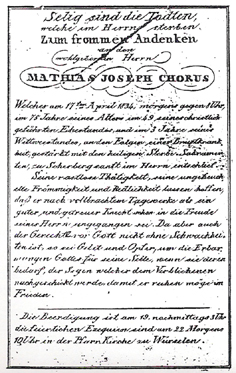 Selig sind die Todten,
welche im Herrn sterben.
Zum frommen Andenken
an den
wohlgeborn Herrn
MATHIAS JOSEPH CHORUS
Welcher am 17ten April 1834, morgens gegen Uhr,
im 75 Jahre seines Alters im 49, seines christlich
geführten Ehestandes, und im 3 Jahre seines
Wittwerstandes, an den Folgen einer Brustkrank-
heit, gestärkt mit den heiligen Sterbe-Sakramen-
ten, zu Scherberg sanft im Herrn entschlief.
Seine rastlose Thätigkeit, seine ungeheuch-
elte Frömmigkeit und Redlichkeit lassen hoffen,
daß er nach vollbrachten Tagewerke als ein
guter, und getreuer Knecht in die Freude
seines Herrn eingegangen sei. Da aber auch
der Gerechte vor Gott nicht ohne Schwachhei-
ten ist, so sei Gebet und Opfer, um die Erbar-
mungen Gottes für seine Seele, wenn sie deren
bedarf, der Segen welcher dem Verblichenen
nachgeschickt werde, damit er ruhen möge im
Frieden.
Die Beerdigung ist am 19. nachmittags 3 Uhr
die feierlichen Exequien sind am 22 Morgens
10 Uhr in der Pfarrkirche zu Würselen.